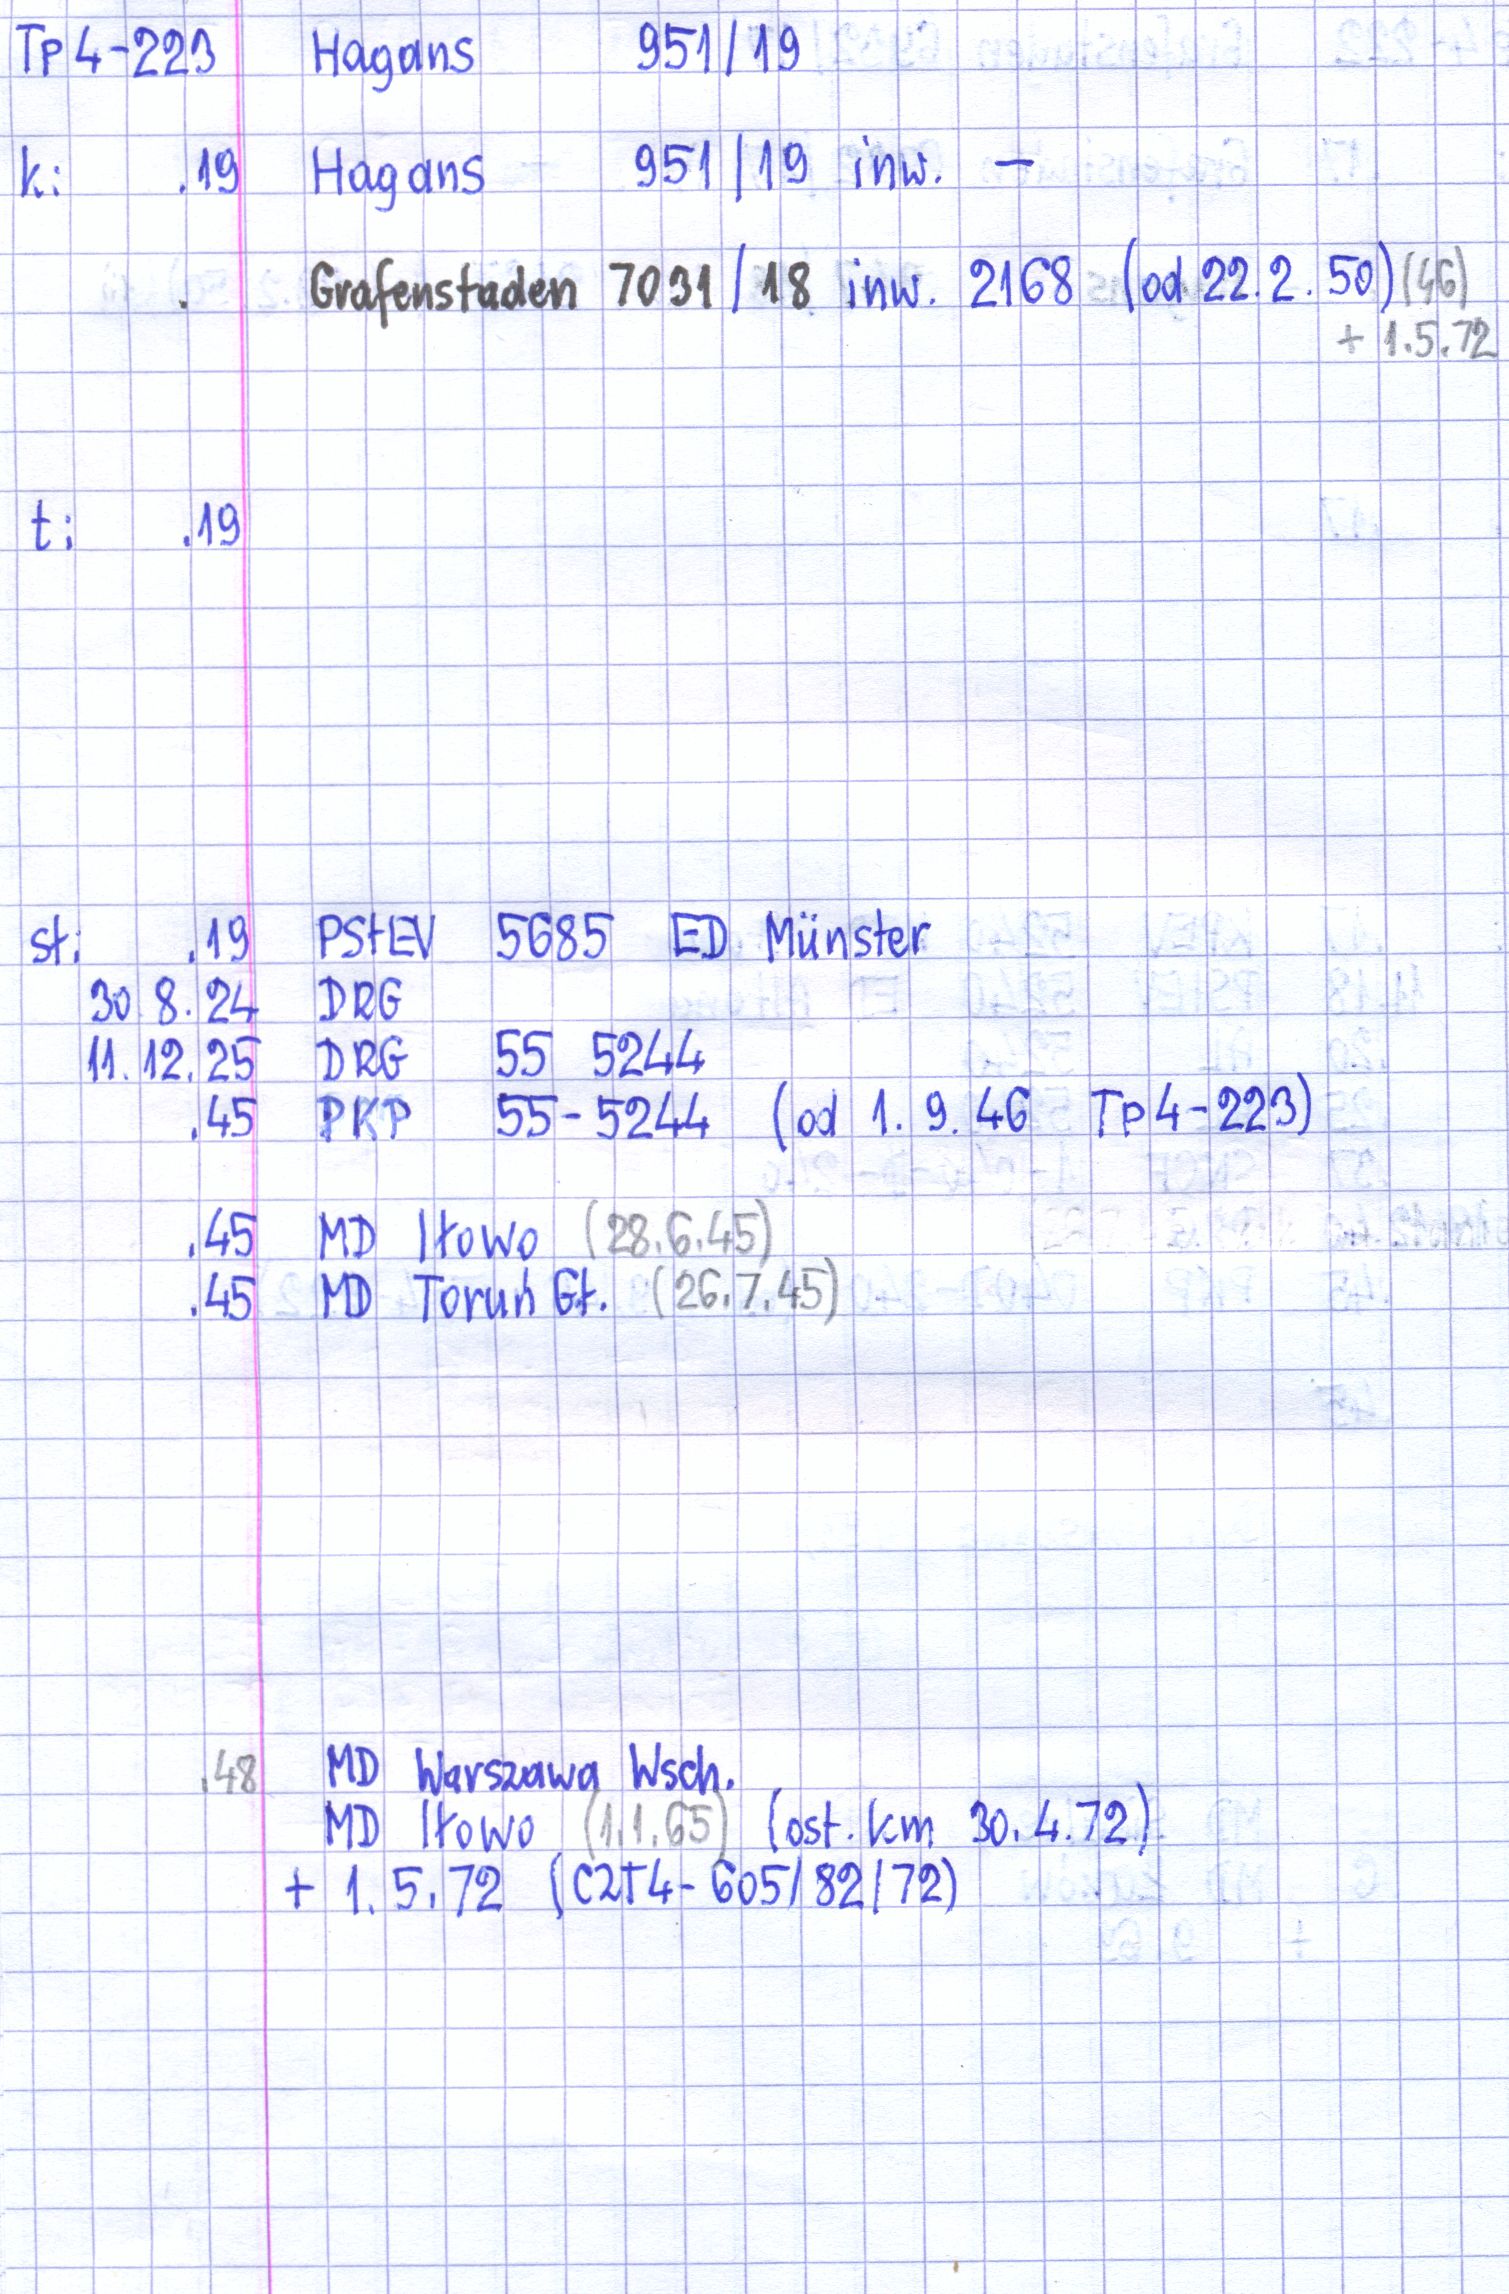 Tp4-223 Hagans 951/19
k: .19 Hagans 951/19 inw. –
. Grafenstaden 7031/18 inw. 2168 (od 22.2.50) (46)
+ 1.5.72
t: .19
st: .19 PStEV 5685 ED Münster
30.8.24 DRG
11.12.25 DRG 55 5244
.45 PKP 55-5244 (od 1.9.46 Tp4-223)
.45 MD Iłowo (28.6.45)
.45 MD Toruń Gł. (26.7.45)
.48 MD Warszawa Wsch.
MD Iłowo (1.1.65) (ost. km 30.4.72)
+ 1.5.72 (C2T4-605/82/72)